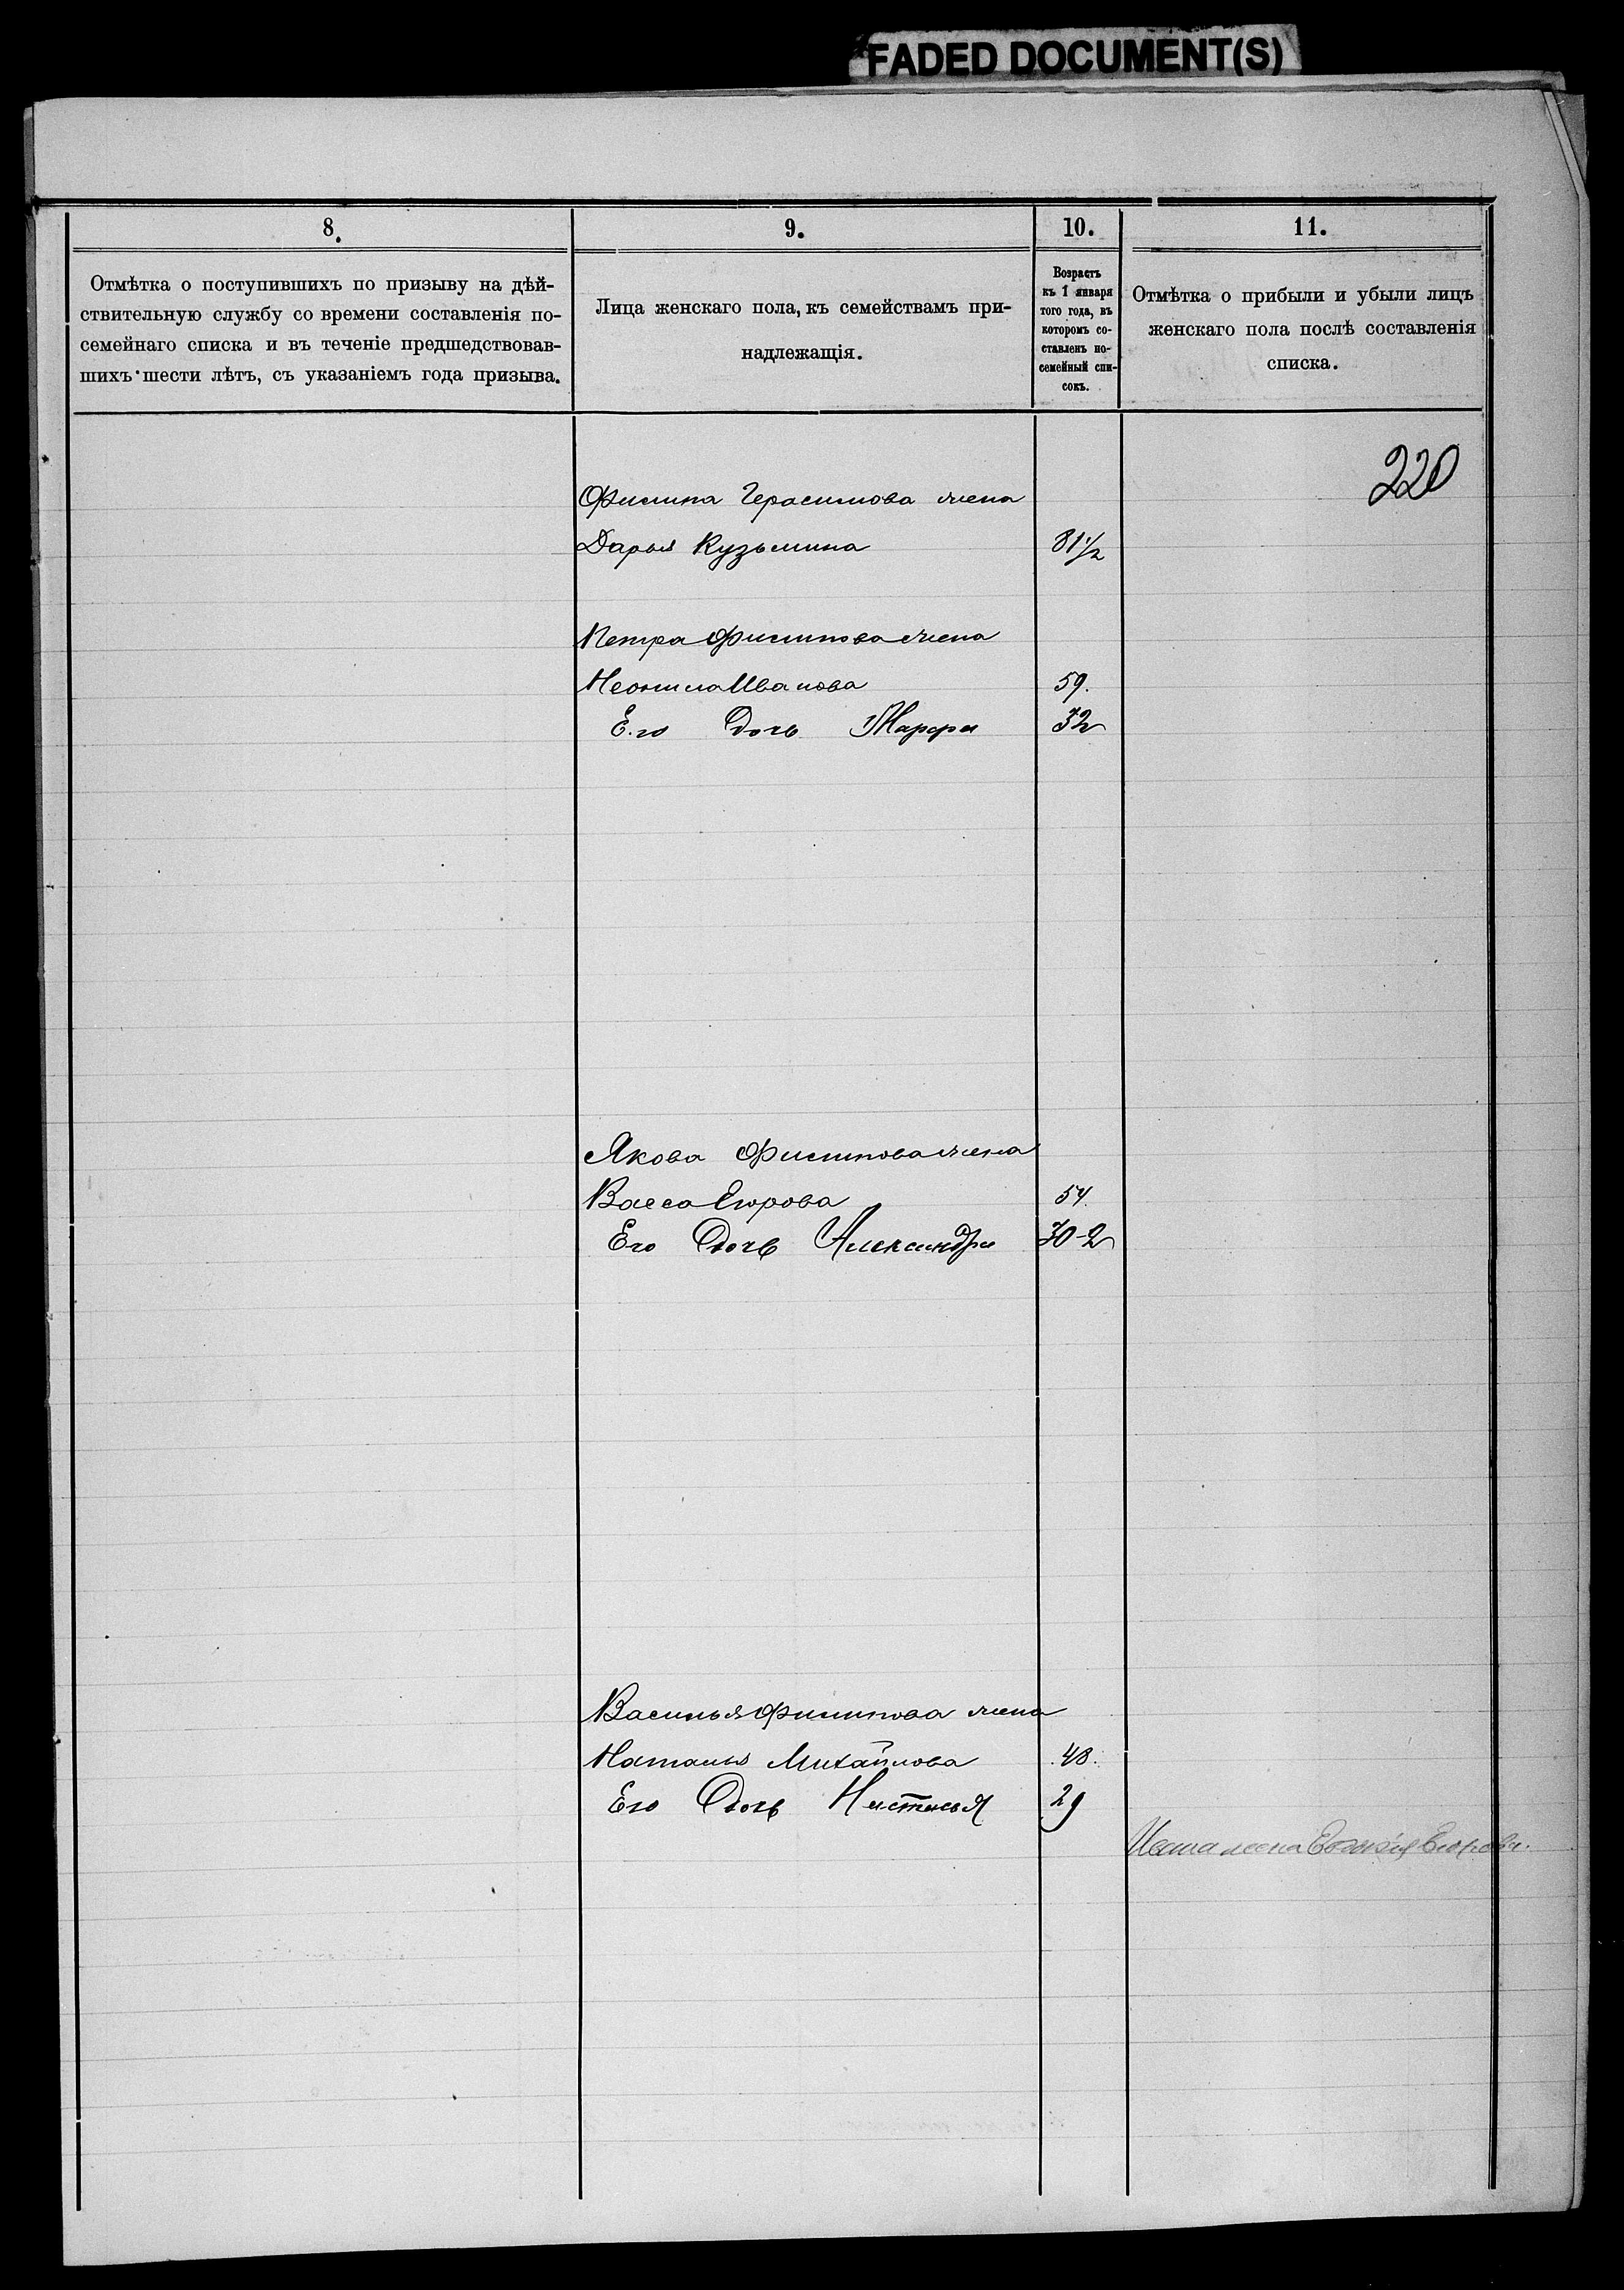 FADED DOCUMENT(S)
8.
9.
10.
11.
Отмѣтка о поступившихъ по призыву на дѣй-
ствительную службу со времени составленія по-
семейнаго списка и въ теченіе предшедствовав-
шихъ шести лѣтъ, съ указаніемъ года призыва.
Лица женскаго пола, къ семействамъ при-
надлежащія.
Возрастъ
къ 1 января
того года, въ
которомъ со-
ставленъ по-
семейный спи-
сокъ.
Отмѣтка о прибыли и убыли лицъ
женскаго пола послѣ составленія
списка.
220
Филипа Герасимова жена
Дарья Кузьмина 81 1/2
Петра Филипова жена
Неонила Иванова 59.
Его Дочь Марфа 32
Якова Филипова жена
Васса Егорова 54.
Его Дочь Александра 30-2
Василья Филипова жена
Наталья Михайлова 48.
Его Дочь Настасья 29
жена Егорова.